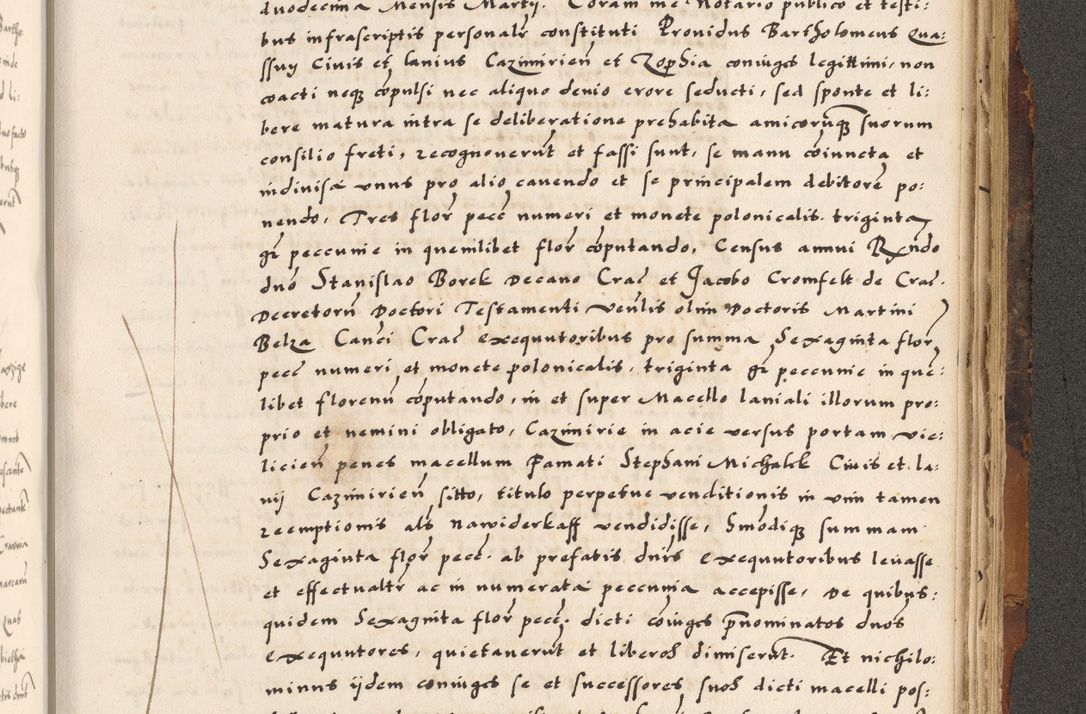 duodecima Mensis Martij. Coram me Notario publico et testi:
bus infrascriptis personalr̃ constituti Prouidus Bartholomeus Qua:
ssuy Ciuis et lanius Cazimirien̄ et Zophia coniuges legittimi, non
coacti neq̨ cōpulsi nec aliquo deuio erore seducti, sed sponte et li:
bere matura intra se deliberatione prehabita amicorūq̨ suorum
consilio freti, recognouerūt et fassi sunt, se manu cōiuncta et
indiuisa vnus pro alio cauendo et se principalem debitorē po:
nendo, Tres flor̃ pecc̃ numeri et monete polonicalis. triginta
gr̃ peccunie in quemlibet flor̃ cōputando, Census annui Rn̄do
dn̄o Stanislao Borek Decano Crac̃ et Jacobo Cromfelt de Crac̃.
Decretorū Doctori Testamenti ven̄lis olim Doctoris Martini
Belza Can̄ci Crac̃ exequutoribus pro summa Sexaginta flor̃
pecc̃ numeri et monete polonicalis, triginta gr̃ peccunie in que:
libet florenū cōputando, in et super Macello laniali illorum pro:
prio et nemini obligato, Cazimirie in acie versus portam vie:
licien̄ penes macellum Famati Stephani Michalek Ciuis et la:
nij Cazimirien̄ sitto, titulo perpetue venditionis in vim tamen
reemptionis als̄ nawiderkaff vendidisse, Smōdiq̨ summam
Sexaginta flor̃ pecc̃. ab prefatis dn̄is exequutoribus leuasse
et effectualtr̃ ac in numerata peccunia accepisse, De quibus:
quidem Sexaginta flor̃ pecc̃. dicti cōiuges p̄nominatos dn̄os
exequutores, quietauerūt et liberos dimiserūt. Et nichilo:
minus ijdem coniuges se et successores suos dicti macelli pos: